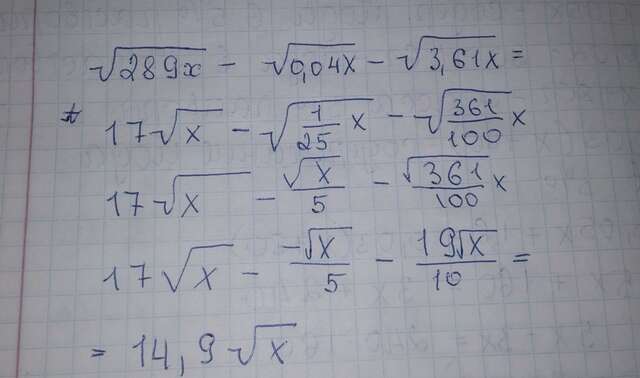 √289x - √0,04x - √3,61x =
17√x - √(1/25 x) - √(361/100) x
17√x - √x/5 - √361/100 x
17√x - -√x/5 - 19√x/10 =
= 14,9√x